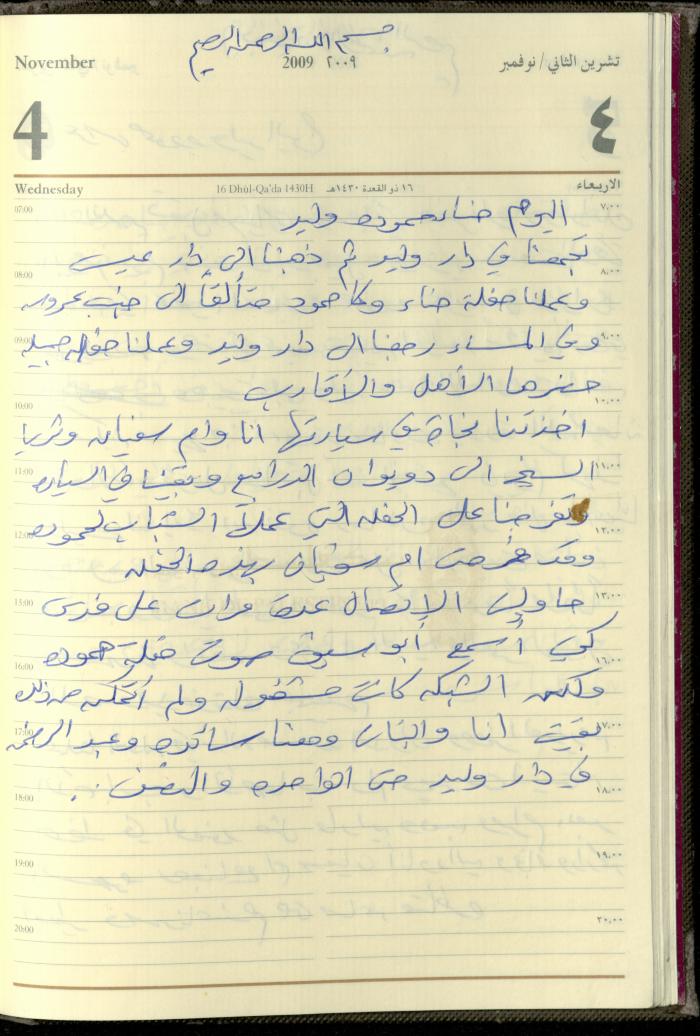 بسم الله الرحمن الرحيم
November 2009 ٢٠٠٩ تشرين الثاني / نوفمبر
4 ٤
Wednesday 16 Dhūl-Qa'da 1430H ١٦ ذو القعدة ١٤٣٠هـ الاربعاء
اليوم حناء حموده وليد
07:00 ٧,٠٠
تجمعنا في دار وليد ثم ذهبنا الى دار عيسى
08:00 ٨,٠٠
وعملنا حفلة حناء وكان حمود متألقاً الى جانب عروسه
وفي المساء رجعنا الى دار وليد وعملنا حفله جميله
09:00 ٩,٠٠
حضرها الأهل والأقارب
10:00 ١٠,٠٠
اخذتنا نجاة في سيارتها انا وام سفيان وثريا
الشيخ الى ديوان الدرابيع وبقينا في السياره
11:00 ١١,٠٠
وتفرجنا على الحفله التي عملها الشباب لحموده
12:00 ١٢,٠٠
وقد فرحت ام سفيان بهذه الحفله
حاولت الإتصال عدة مرات على فرس
15:00 ١٣,٠٠
كي أسمع أبو سيف صوت حفلة حموده
16:00 ١٦,٠٠
ولكن الشبكه كانت مشغوله ولم أتمكن من ذلك
بقيت انا والبنات ومعنا سائده وعبد الرحمن
17:00 ١٧,٠٠
في دار وليد حتى الواحده والنصف .
18:00 ١٨,٠٠
19:00 ١٩,٠٠
20:00 ٢٠,٠٠